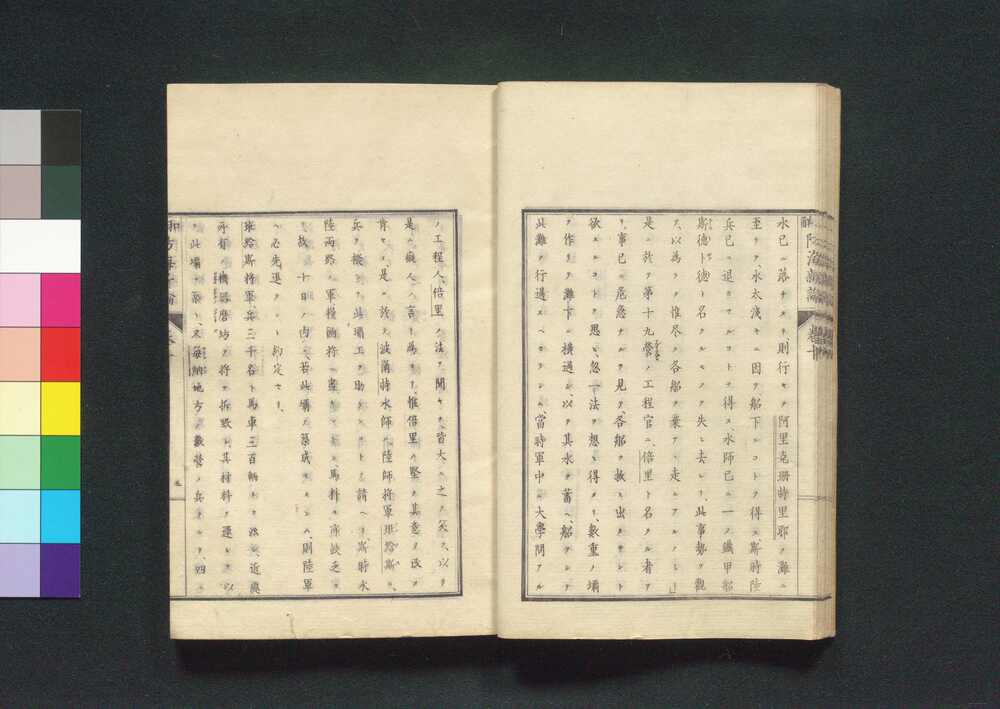 水已ニ落チタリ、則行キテ阿里克珊特里耶ノ灘ニ
至リタリ、水太浅キニ因テ船下ルコトヲ得ス、斯時陸
兵已ニ退キテルコトヲ得ス、水師已ニ一ノ鐵甲船
斯徳ト徳ト名クルモノヲ失ヒ去レリ、此事勢ヲ觀
テ、以為ラク惟尽ク各船ヲ棄テヽ走ルアルノミ」
是ニ於テ第十九營ノ工程官ニ、倍里ト名クル者ア
リ、事已ニ危急ナルヲ見テ、各船ヲ救ヒ出サント
欲スルコトヲ思ヒ、忽一法ヲ想ヒ得タリ、數重ノ壩
ヲ作リテ灘下ニ横過シ、以テ其水ヲ蓄ヘ、船ヲシテ
此灘ヲ行過スヘカラシム、當時軍中ノ大學問アル
ノ工程人、倍里ノ法ヲ聞キテ、皆大ニ之ヲ笑ス、以テ
是レ癡人ノ言ト為セリ、惟倍里ハ堅ク其意ヲ改メ
肯セス、是ニ於テ波爾特水師ト陸師将軍班給斯ニ
兵ヲ撥シテ此壩工ヲ助ケンコトヲ請ヘリ、斯時水
陸両路ノ軍糧餉将ニ盡キントシ、馬料モ亦缺乏ス
ル故ニ十日ノ内ニ若此壩ヲ築成セサレハ、則陸軍
ハ必先退クヘシト約定セリ、
班給斯将軍、兵三千名ト馬車三百輛トヲ派シ、近處
所有ノ機器磨坊ヲ将テ拆毀シ、其材料ヲ運シテ以
テ此壩ヲ築ク、又毎納地方ノ數營ノ兵